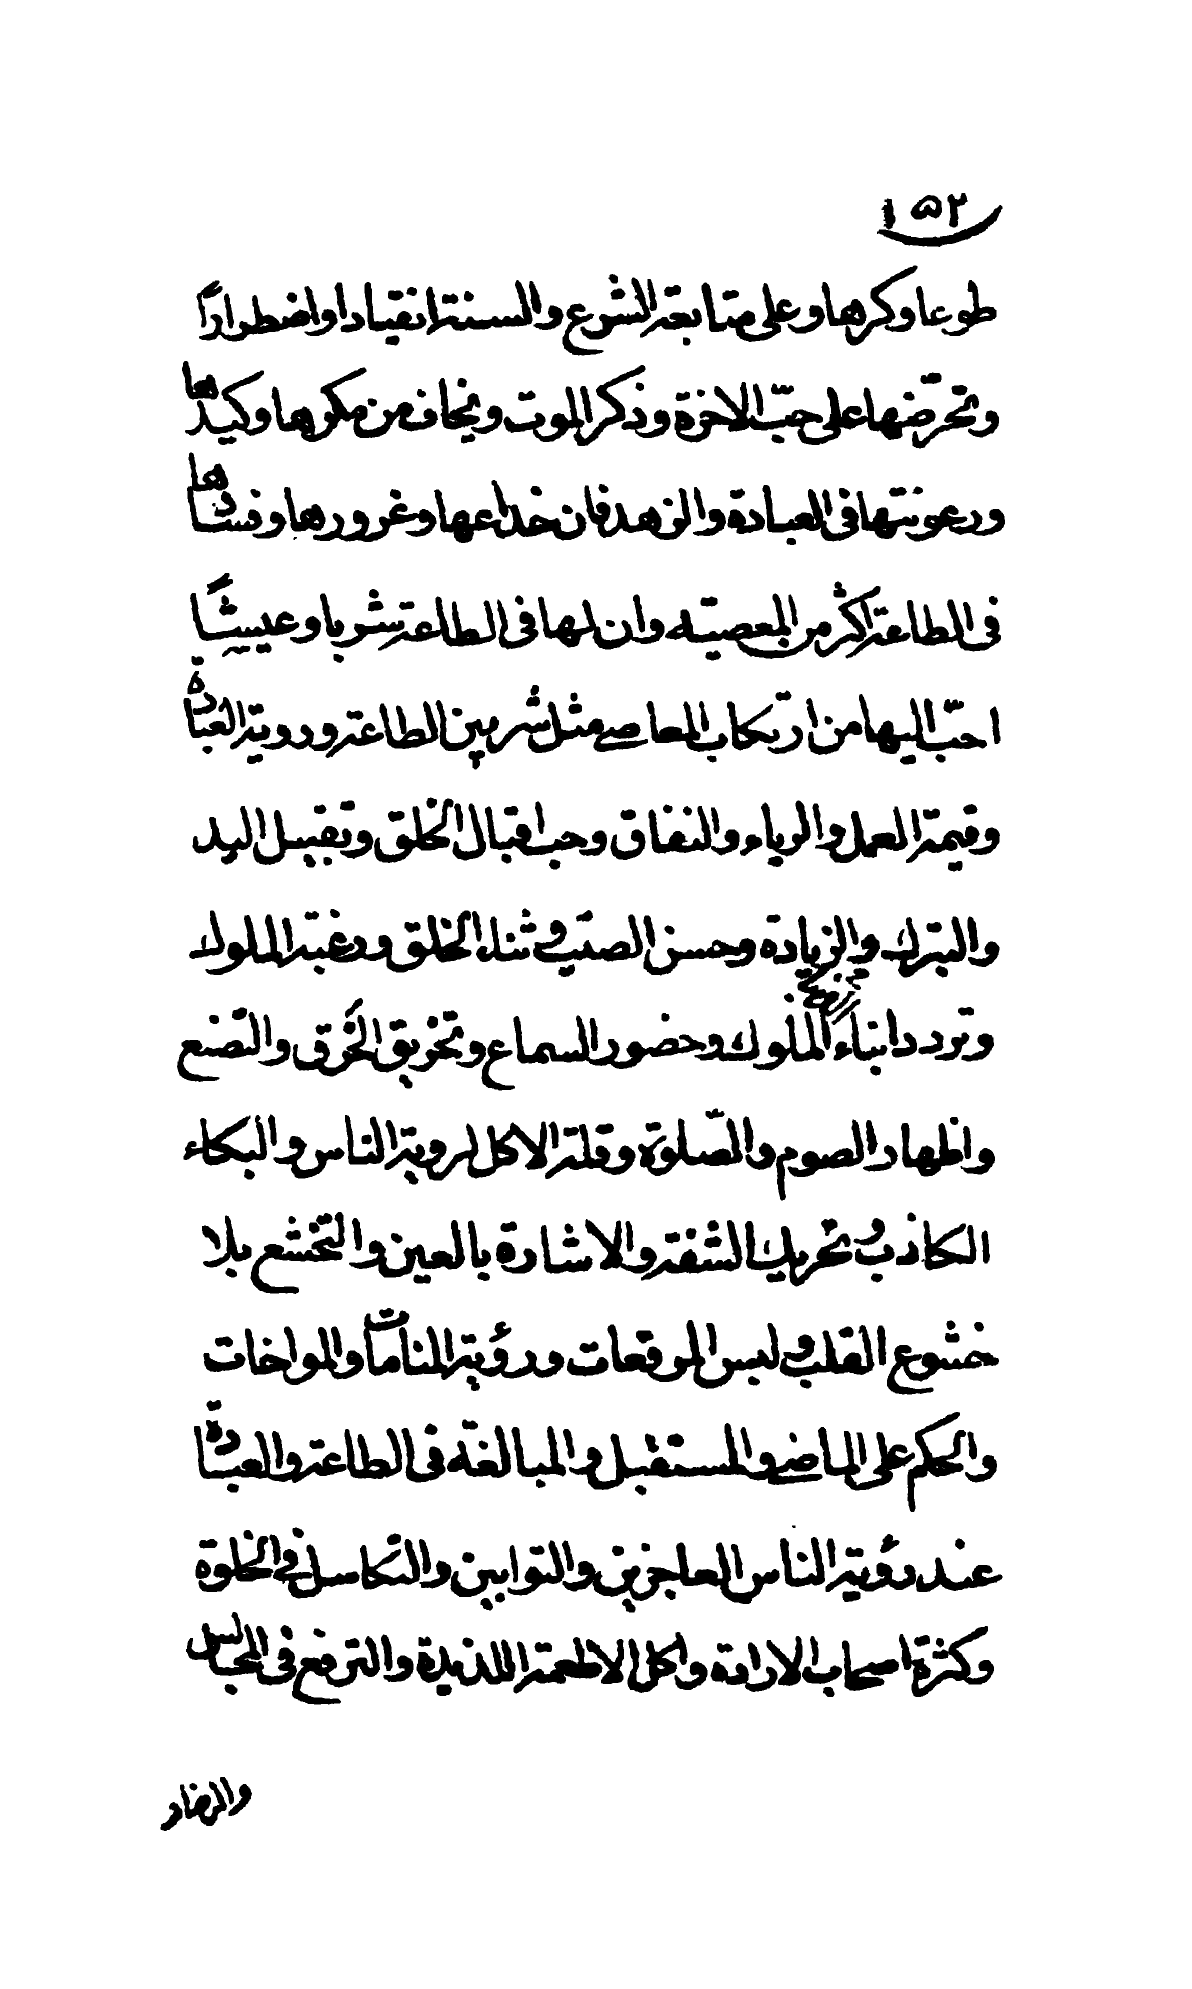 ۱۵۲
طوعا وكرها وعلى متابعة الشرع والسنة انقيادا واضطرارًا
وتحرّضها على حبّ الاخرة وذكر الموت ويخاف من مكرها وكيدها
ورعونتها فى العبادة والزهد فان خداعها وغرورها وفسادها
فى الطاعة اكثر من المعصية وان لها فى الطاعة شربا وعيشًا
احبّ اليها من ارتكاب المعاصى مثل شرمين الطاعة وروية العبادة
وقيمة العمل والرياء والنفاق وحب اقبال الخلق وتقبيل اليد
والتبرك والزيادة وحسن الصيت وثناء الخلق ورغبة الملوك
وتردد ابناء الملوك وحضور السماع وتخريق الخرق والتصنع
واظهار الصوم والصّلوة وقلة الاكل لروية الناس والبكاء
الكاذب وتحريك الشفة والاشارة بالعين والتخشع بلا
خشوع القلب ولبس المرقعات ورؤية المنامات والمواخات
والحكم على الماضى والمستقبل والمبالغة فى الطاعة والعبادة
عند رؤية الناس العاجزين والتوابين والتكاسل فى الخلوة
وكثرة اصحاب الارادة واكل الاطعمة اللذيذة والترفع فى المجالس